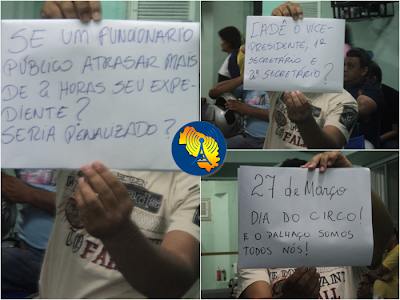 SE UM FUNCIONÁRIO
PÚBLICO ATRASAR MAIS
DE 2 HORAS SEU EXPE-
DIENTE?
SERIA PENALIZADO?
CADÊ O VICE-
PRESIDENTE, 1º
SECRETÁRIO E
2º SECRETÁRIO?
27 de Março
DIA DO CIRCO!
E O PALHAÇO SOMOS
TODOS NÓS!